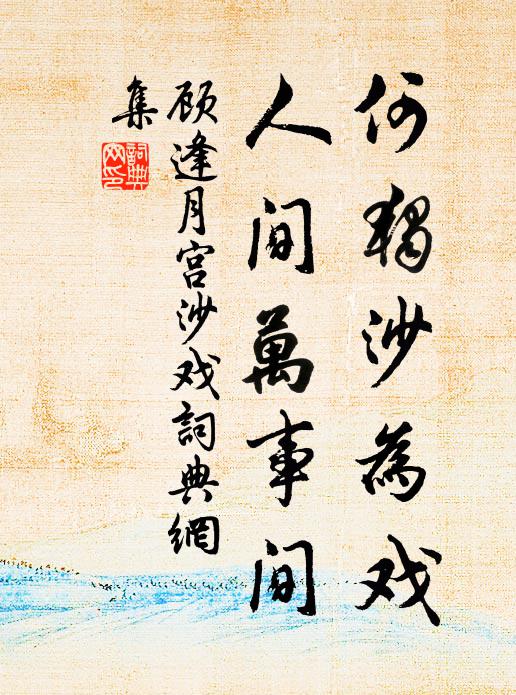 何獨沙為戏
人间萬事间
顾逢月宫沙戏詞典網
集
詞典网印